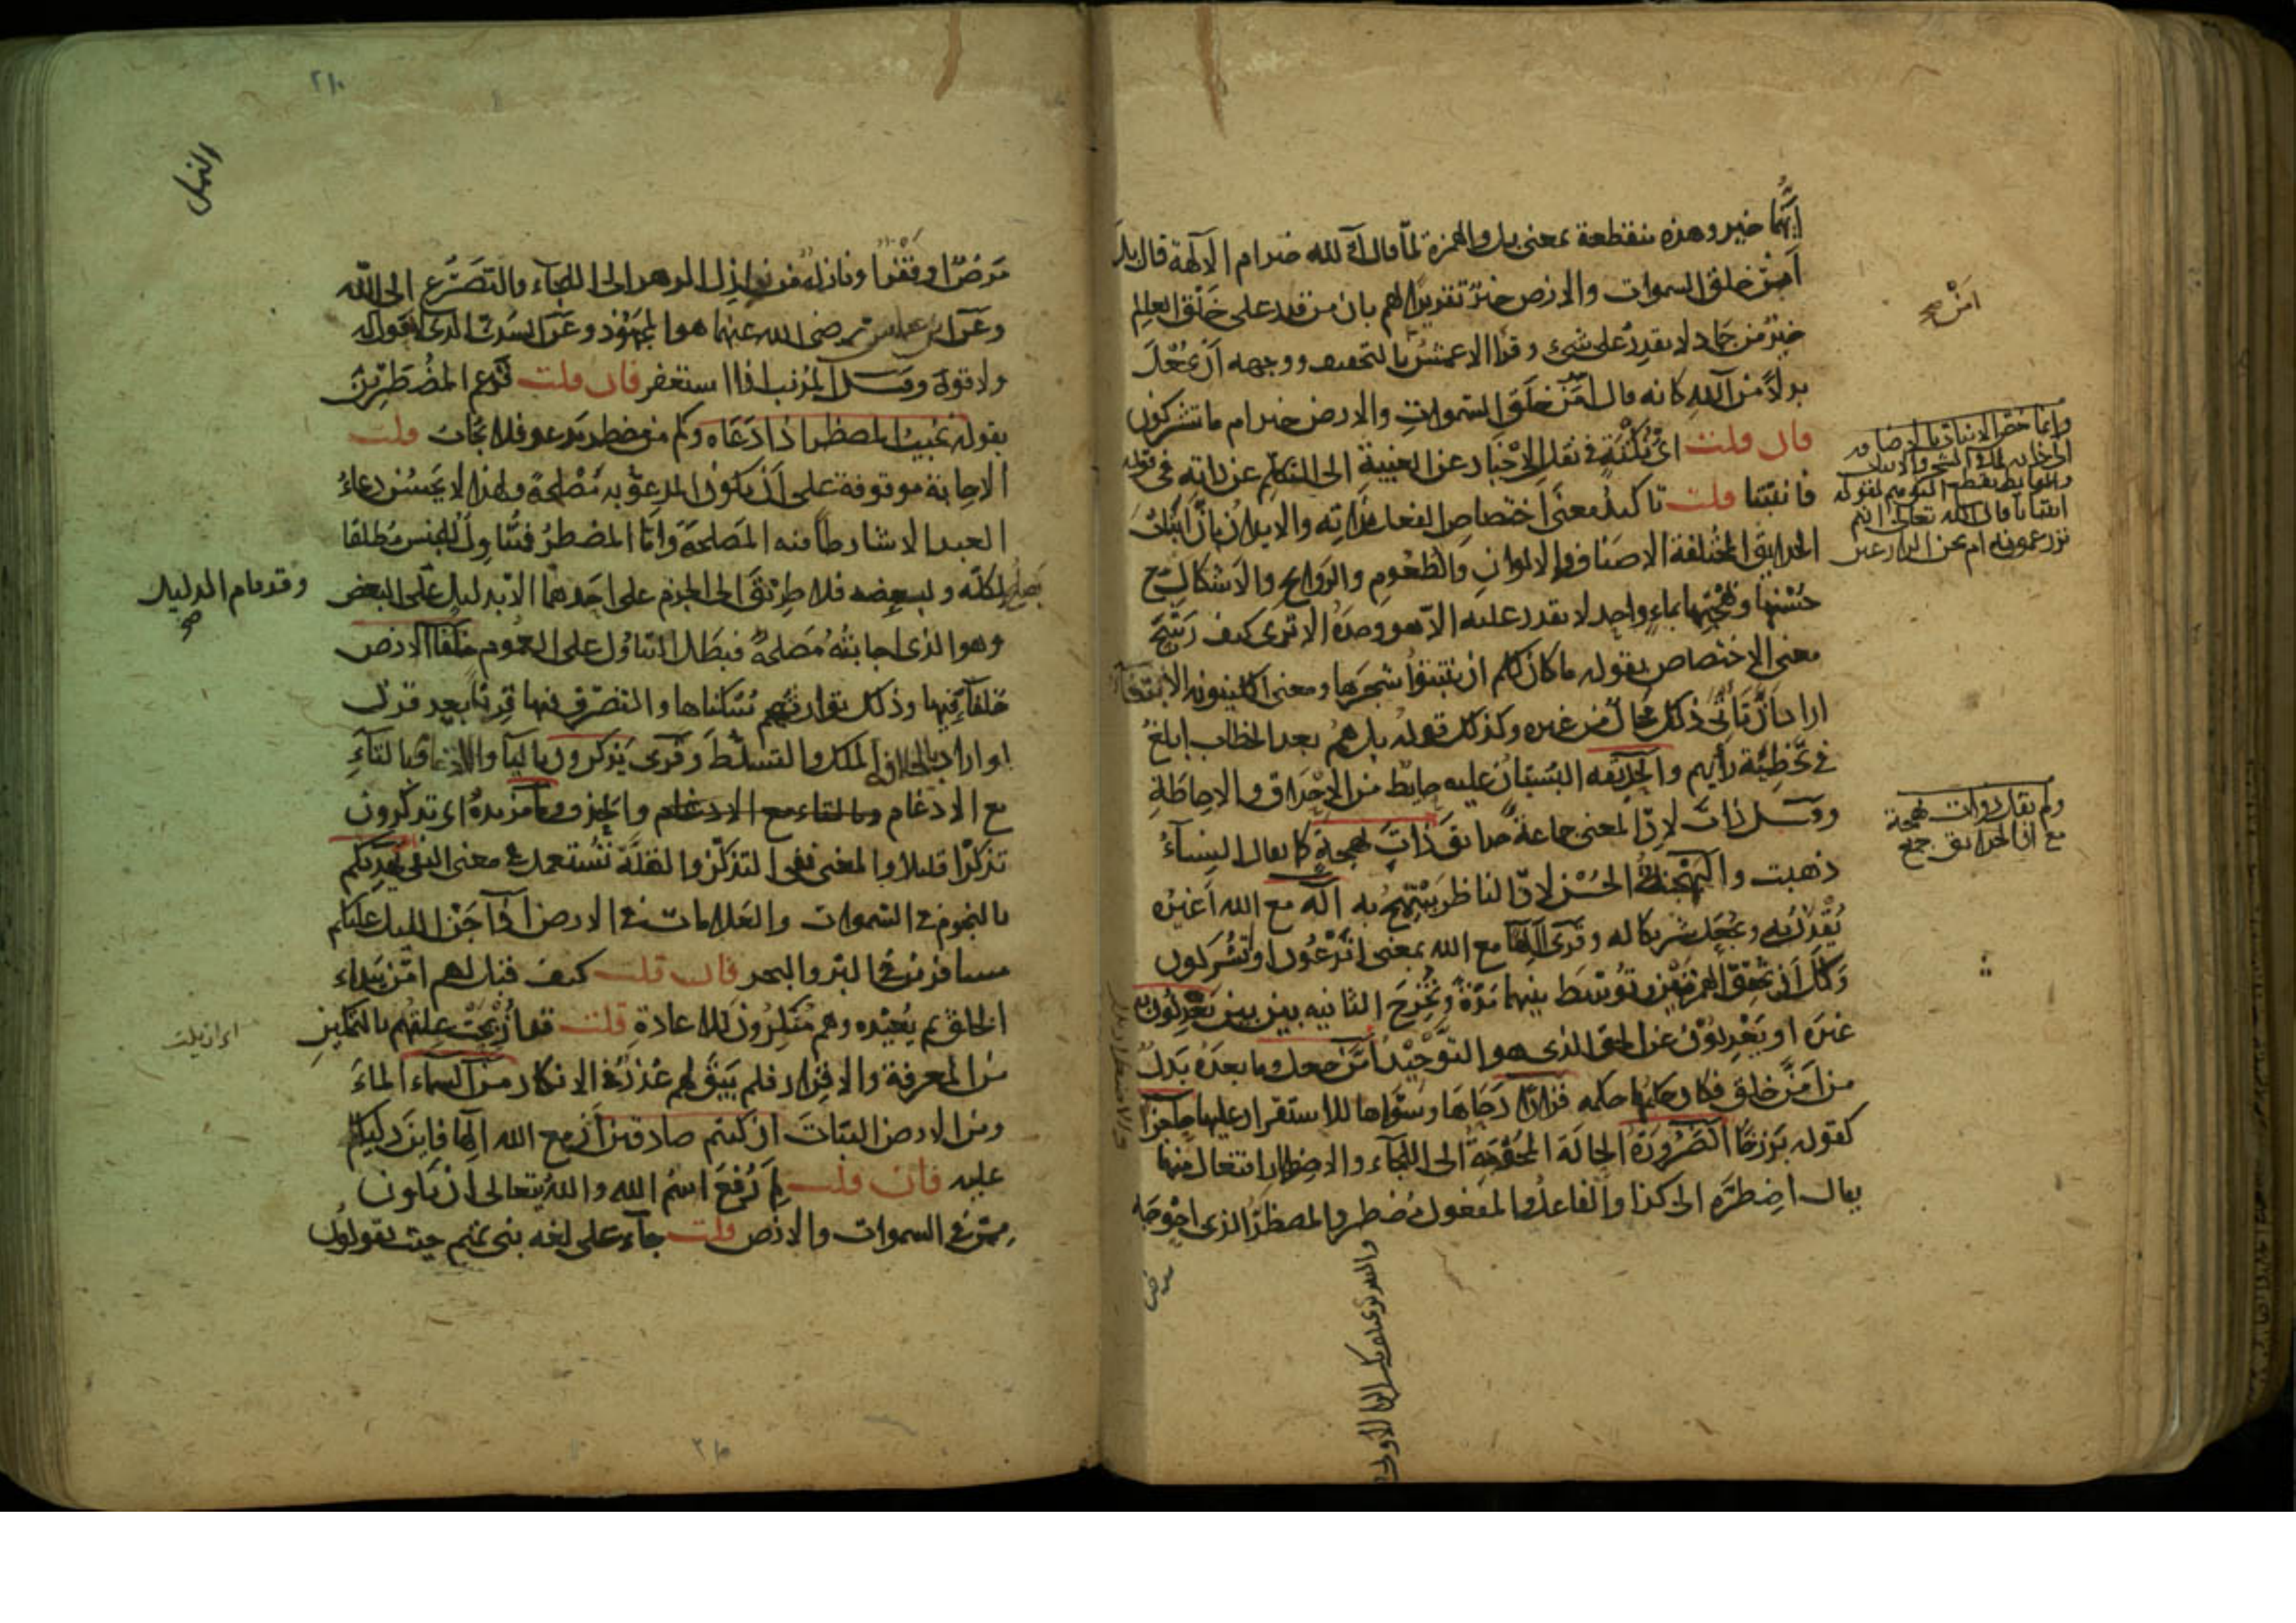 أيهما خير وهذه منقطعة بمعنى بل والهمزة لما قال آلله خير ام الآلهة قال بل
أمن خلق السموات والارض خير تقريرا لهم بان من قدر على خلق العالم
خير من جماد لا يقدر على شيء وقرأ الاعمش بالتخفيف ووجهه أن يجعل
بدلا من الله كانه قال أمن خلق السموات والارض خير ام ما تشركون
فان قلت اي نكتة في نقل الاخبار عن الغيبة الى التكلم عن ذاته في قوله
فانبتنا قلت تاكيد معنى اختصاص الفعل بذاته والايذان بان انبات
الحدايق المختلفة الاصناف والالوان والطعوم والروايح والاشكال مع
حسنها وبهجتها بماء واحد لا يقدر عليه الا هو وحده الا ترى كيف رشح
معنى الاختصاص بقوله ما كان لكم ان تنبتوا شجرها ومعنى الكينونة الانبغاء
اراد ان تأتي ذلك محال من غيره وكذلك قوله بل هم بعد الخطاب ابلغ
في تخطئة رأيهم والحديقة البستان عليه حايط من الاحداق والاحاطة
وقيل ذات لان المعنى جماعة حدايق ذات بهجة كما يقال النساء
ذهبت والبهجة الحسن لان الناظر يبتهج به أاله مع الله أغيره
يقرن به ويجعل شريكا له وقرئ أالها مع الله بمعنى اتدعون او تشركون
ولك ان تحقق الهمزتين وتوسط بينهما مدة وتخرج الثانيه بين بين يعدلون به
غيره او يعدلون عن الحق الذي هو التوحيد أمن جعل وما بعده بدل
من امن خلق فكان حكمهما حكمه قرارا دحاها وسواها للاستقرار عليها حاجزا
كقوله برزخا الضرورة الحالة المحوجة الى اللجاء والاضطرار افتعال منها
يقال اضطره الى كذا والفاعل والمفعول مضطر والمضطر الذي احوجه
أمن صح
وانما خص الانبات
ولم يقل ذوات بهجة
مع ان الحدايق جمع
مرض
النمل
مرض او فقر او نازلة من نوازل الدهر الى اللجاء والتضرع الى الله
وعن ابن عباس رضي الله عنهما هو المجهود وعن السدي الذي لا حول له
ولا قوة وقيل المذنب اذا استغفر فان قلت قد عم المضطرين
بقوله يجيب المضطر اذا دعاه وكم من مضطر يدعو فلا يجاب قلت
الاجابة موقوفة على ان يكون المدعو به مصلحة ولهذا لا يحسن دعاء
العبد الا شارطا فيه المصلحة واما المضطر فمتناول للجنس مطلقا
يصلح لكله ولبعضه فلا طريق الى الجزم على احدهما الا بدليل على البعض
وقد قام الدليل صح
وهو الذي اجابته مصلحة فبطل التناول على العموم خلفا الارض
خلفاء فيها وذلك توارثهم سكناها والتصرف فيها قرنا بعد قرن
او اراد بالخلافة الملك والتسلط وقرئ يذكرون باليا والادغام وبالتاء
مع الادغام وبالتاء مع الادغام والحذف وما مزيدة اي تذكرون
تذكرا قليلا والمعنى نفي التذكر والقلة تستعمل في معنى النفي يهديكم
بالنجوم في السموات والعلامات في الارض اذا جن الليل عليكم
مسافرين في البر والبحر فان قلت كيف قيل لهم امن يبداء
الخلق ثم يعيده وهم منكرون للاعادة قلت قد ازيحت علتهم بالتمكين
اي ازيلت
من المعرفة والاقرار فلم يبق لهم عذر في الانكار من السماء الماء
ومن الارض النبات ان كنتم صادقين ان مع الله الها فاين دليلكم
عليه فان قلت لم رفع اسم الله والله يتعالى ان يكون
ممن في السموات والارض قلت جاء على لغه بني تميم حيث يقولون